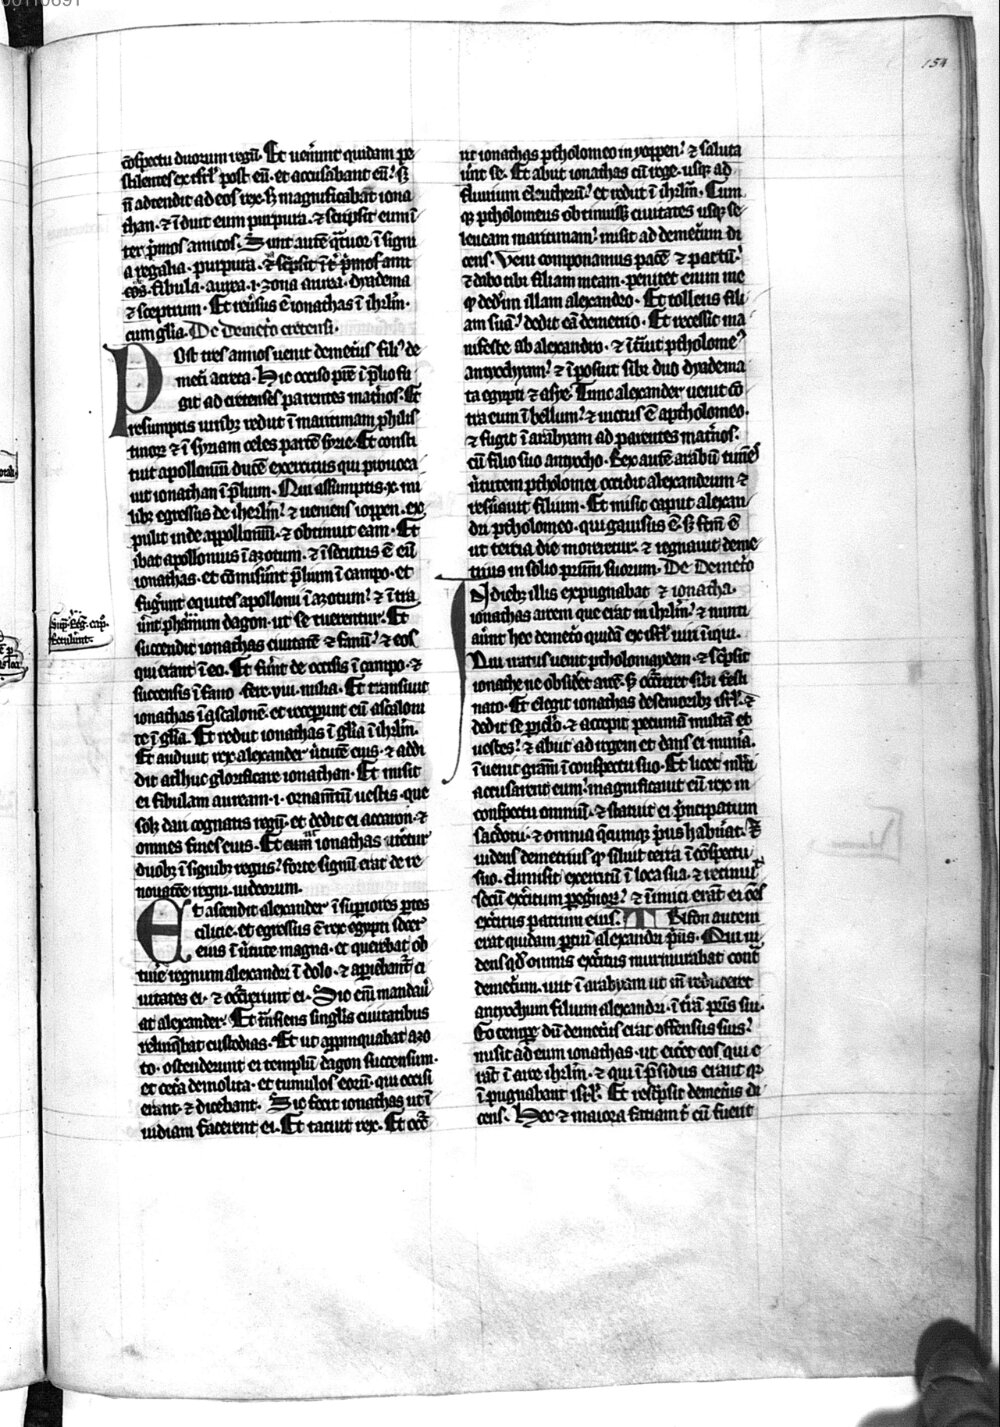 00110691
154
ꝯspectu duorum regū. Et uenerūt quidam pe
stilentes ex isrl' post eū. et accusabant eū. sꝫ
n̄ adtendit ad eos rex. sꝫ magnificabat iona
than. ⁊ īduit eum purpura. ⁊ scripsit eum ī
ter pͥmos amicos. Sunt autē qͣtuor ī signi
a regalia. purpura. ⁊ scͥpsit īt̄ pͥmos ami
cos. fibula. aurea. i. zona aurea. dyadema
⁊ sceptrum. Et reuersus ē ionathas ī ihrlm̄.
cum glīa. De demetͥo cretensi.
Post tres annos uenit demetͥus filꝰ de
metͥi a creta. Hic occiso pr̄e ī p̄lio fu
git ad cretenses parentes matͥnos. Et
resumptis uiribꝫ rediit ī maritimam philis
tinoꝝ ⁊ ī syriam celes partē syrie. Et consti
tuit apollonīū ducē exercitus qui prouoca
uit ionathan ī p̄lium. Qui assumptis. x. mi
libꝫ egressus de iherl̄m. ⁊ ueniens ioppen. ex
pulit inde appollonīū. ⁊ obtinuit eam. Et
ibat apollonius ī azotum. ⁊ īsecutus ē eū
ionathas. et cōmiserūt p̄lium ī campo. et
fugerūt equites apollonii ī azotum. ⁊ ītra
uer̄nt phanum dagon. ut se tuerentur. Et
succendit ionathas ciuitatē ⁊ fanū. ⁊ eos
qui erant ī eo. Et fuerūt de occisis ī campo. ⁊
succensis ī fano. fere. viii. milia. Et transiuit
ionathas ī ascalonē. et receperunt eū ascaloni
te ī glīa. Et rediit ionathas ī glīa ī ihrlm̄.
Et audiuit rex alexander uͥtutē eius. ⁊ addi
dit adhuc glorificare ionathan. Et misit
ei fibulam auream. i. ornam̄tū uestis. que
solꝫ dari cognatis regū. et dedit ei accaron. ⁊
omnes fines eius. Et cum ionathas ut̄etur
duobꝫ ī signibꝫ regus. forte signū erat de re
nouatōe regni. iudeorum.
Et ascendit alexander ī superiores partes
cilicie. et egressus ē rex egypti socer
eius ī uͥtute magna. et querebat ob
tinēe regnum alexandri ī dolo. ⁊ apiebant̄ ci
uitates ei. ⁊ occͥrerunt ei. Sic enī mandau̅
at alexander. Et tͣnsiens singlis ciuitatibus
relinq̄bat custodias. Et ut appinquabat azo
to. ostenderunt ei templū dagon succensum.
et cetͥa demolita. et tumulos eorū. qui occisi
erant. ⁊ dicebant. Sic fecit ionathas ut ī
uidiam facerent ei. Et tacuit rex. Et occͥr
Sup. reg. cap.
retulerūt.
rit ionathas ptholomeo in yoppen. ⁊ saluta
uer̄nt se. Et abiit ionathas cū rege. usqꝫ ad
fluuium eleutherū. et rediit ī ihrlm̄. Cum
qꝫ ptholomeus obtinuissꝫ ciuitates usqꝫ se
leucam maritimam. misit ad demetͥum di
cens. Veni componamus pacē ⁊ pactū.
⁊ dabo tibi filiam meam. penitet enim me
ꝙ dedeͥim illam alexandro. Et tollens fili
am suā. dedit eā demetrio. Et recessit ma
nifeste ab alexandro. ⁊ ītrauit ptholomeꝰ
antyochyam. ⁊ īposuit sibi duo dyadema
ta egypti ⁊ asye. Tunc alexander uenit cō
tra eum ī bellum. ⁊ uictus ē a ptholomeo.
⁊ fugit ī arabyam ad parentes matͥnos.
cū filio suo antyocho. Rex autē arabū timēs
uͥtutem ptholomei occidit alexandrum ⁊
reseruauit filium. Et misit caput alexan
dri ptholomeo. qui gauisus ē sꝫ factū ē
ut tertia die moreretur. ⁊ regnauit deme
trius in solio patrum suorum. De Demetͥo
In diebꝫ illis expugnabat ⁊ ionatha.
ionathas arcem que erat in ihrlm̄. ⁊ nunti
auer̄nt hec demetͥo quidā ex isrl' uiri īiqui.
Qui iratus uenit ptholomaydem. ⁊ scͥpsit
ionathe ne obsideret arcē. sꝫ occͥreret sibi festi
nato. Et elegit ionathas de senioribꝫ isrl'. ⁊
dedit se periclo. ⁊ accepit pecuniā multā et
uestes. ⁊ abiit ad regem et dans ei munera.
īuenit gram̄ ī conspectu suo. Et licet mlti
accusarent eum. magnificauit eū rex in
conspectu omniū. ⁊ statuit ei pͥncipatum
sacerdotii. ⁊ omnia q̄cumqꝫ pͥus habuerat. Et
uidens demetrius ꝙ siluit terra ī cōspectu
suo. dimisit exercitū ī loca sua. ⁊ retinuit
secū exercitum peregrinorū. ⁊ īimici erāt ei oēs
exercitus patrum eius. Trison autem
erat quidam partiū alexandri pͥus. Qui ui
dens qd̓ omnis exercitus murmurabat contͣ
demetͥum. iuit ī arabyam ut inde reduceret
antyochum filium alexandri. ī terrā patris sui.
Eo tempꝭ dū demetͥus erat offensus suis.
misit ad eum ionathas. ut eiceret eos qui e
rāt ī arce ihrlm̄. ⁊ qui ī p̄sidiis erant qꝛ
īpugnabant isrl'. Et rescͥpsit demetͥus di
cens. Hec ⁊ maiora faciam tͥ cū fuerit